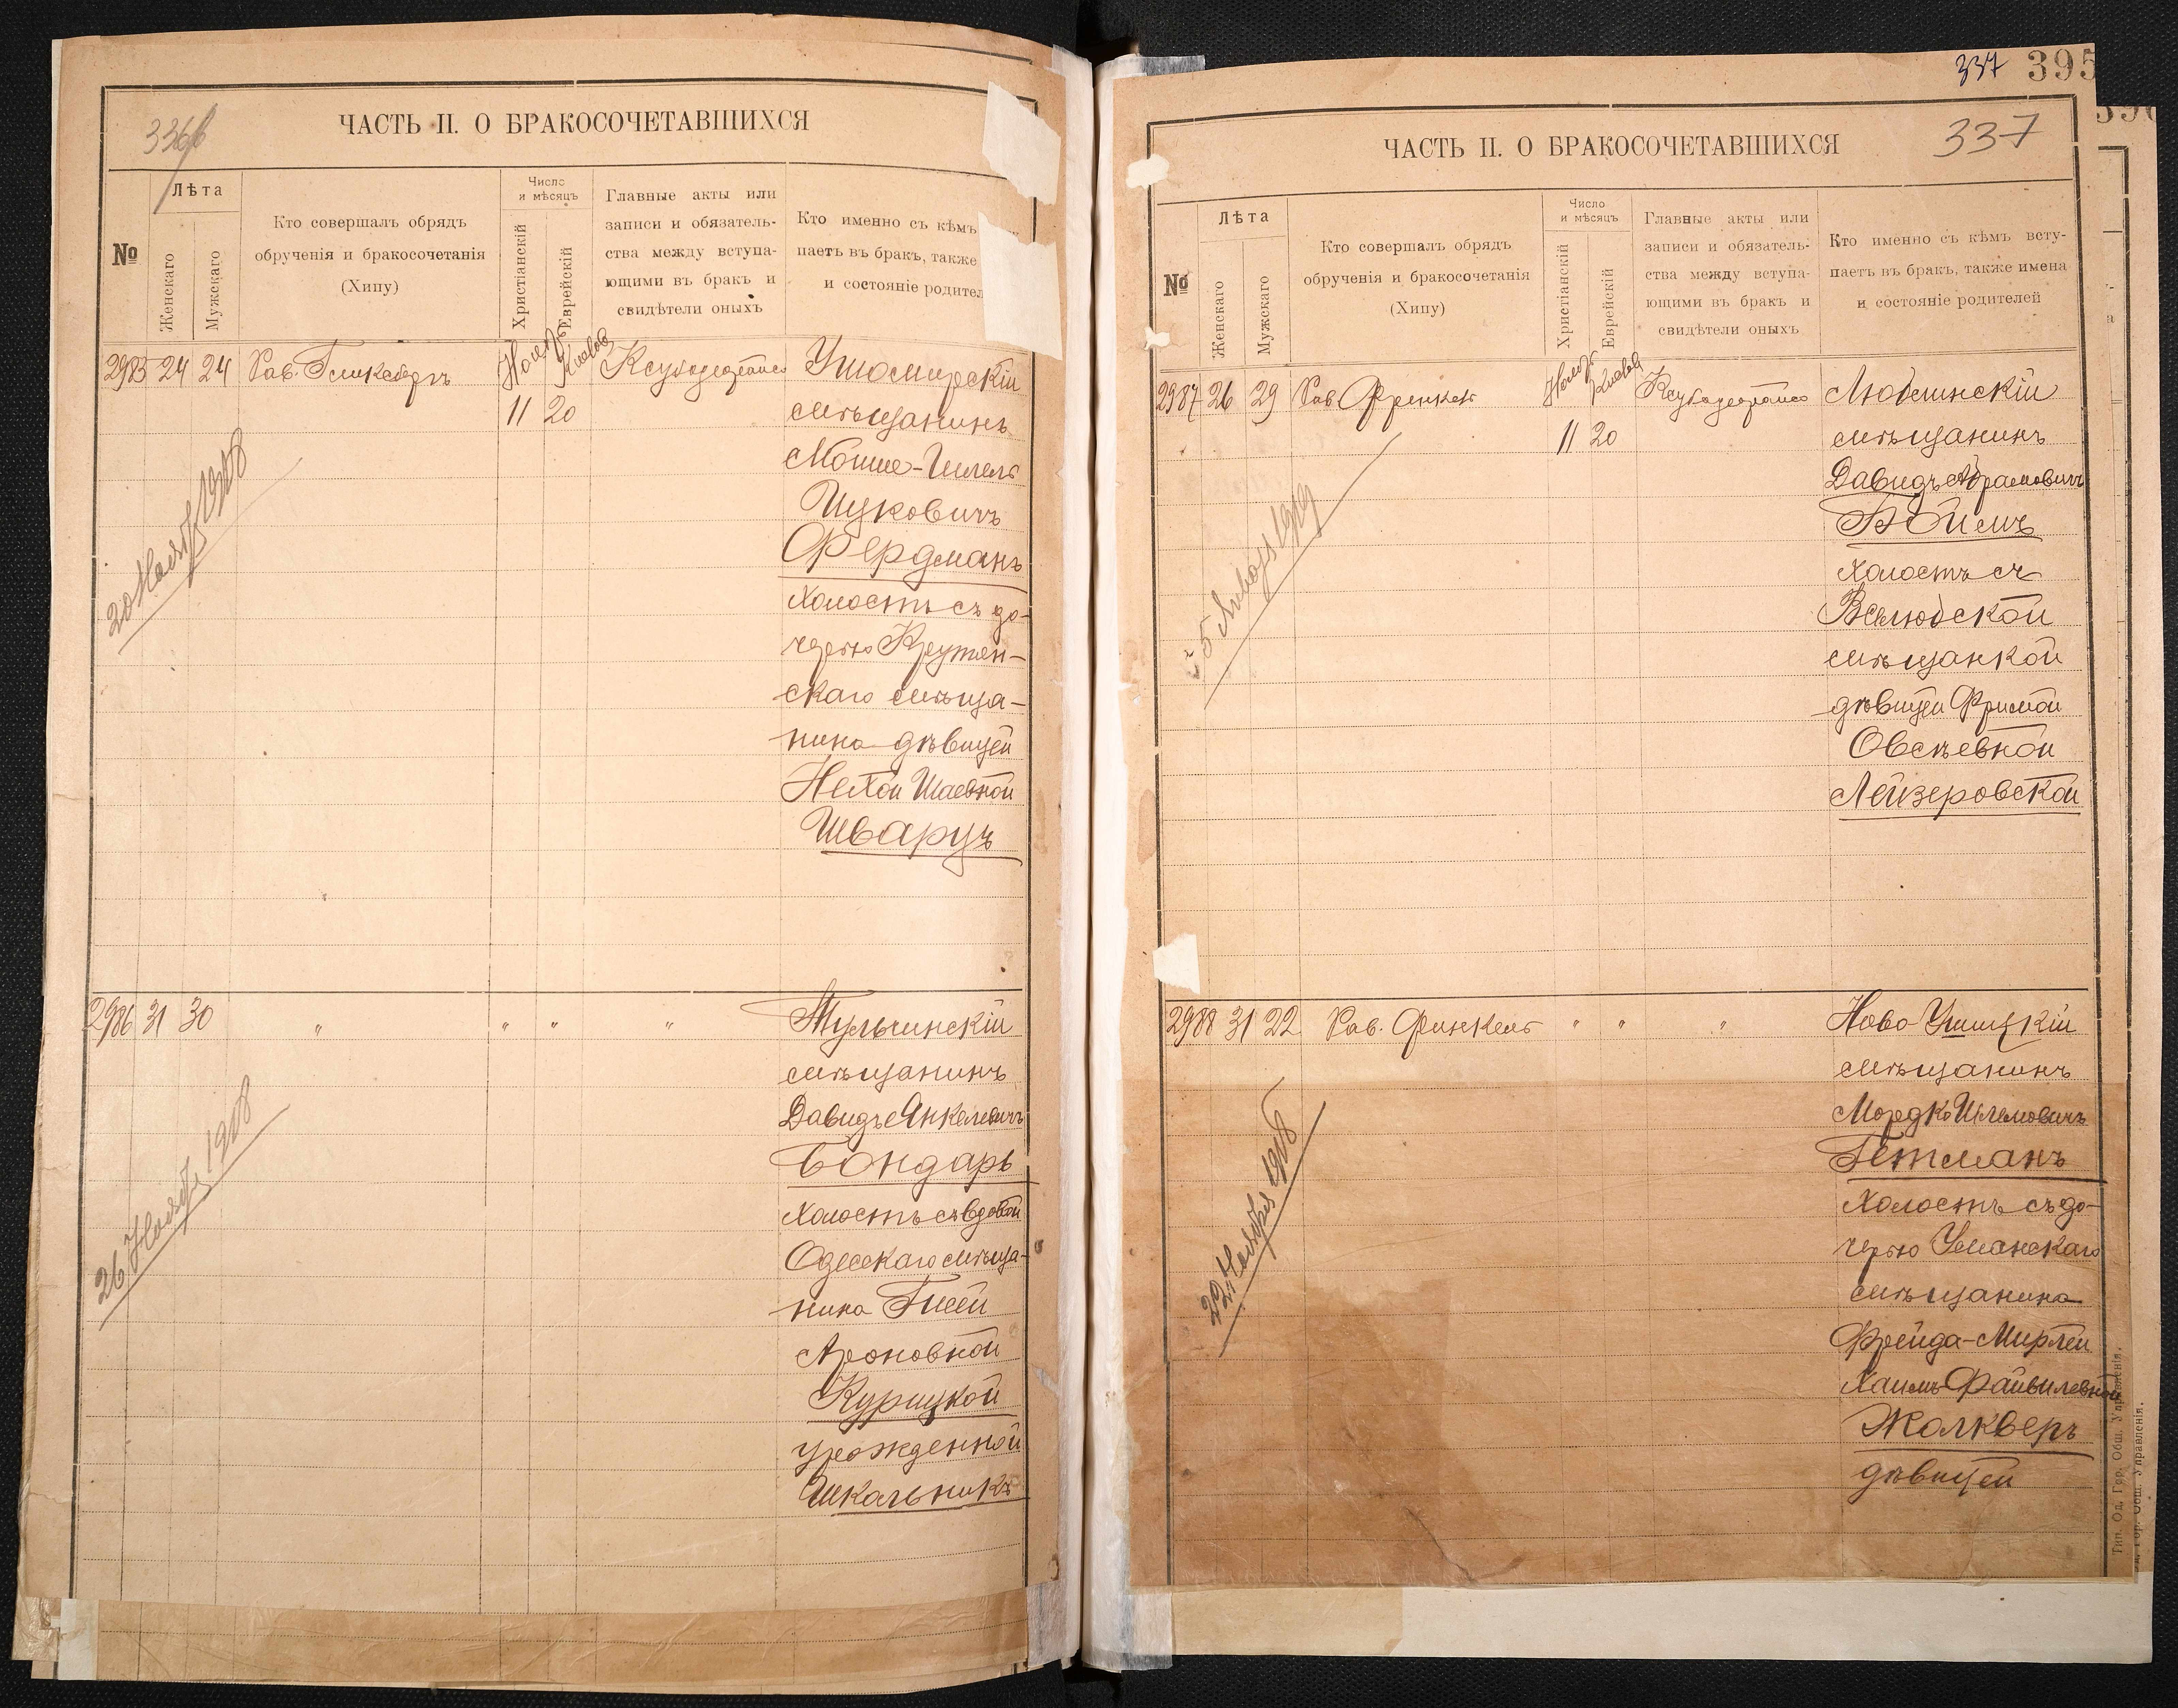 336
ЧАСТЬ II. О БРАКОСОЧЕТАВШИХСЯ
№
Лѣта
Женскаго
Мужскаго
Кто совершалъ обрядъ
обрученія и бракосочетанія
(Хипу)
Число
и мѣсяцъ
Христіанскій
Еврейскій
Главные акты или
записи и обязатель-
ства между вступа-
ющими въ бракъ и
свидѣтели оныхъ
Кто именно съ кѣмъ
паетъ въ бракъ, также
и состояніе родител
2985 24 24 Рав. Гликсбергъ
11 20
Ушомирскій
мѣщанинъ
Мошие-
Ицковичъ
Фердманъ
холостъ съ до-
черью Крутян-
скаго мѣща-
нина дѣвицей
Нехой Шаевной
Шварцъ
20 Нояб 1908
2986 31 30 " " " "
Тульчинскій
мѣщанинъ
Давидъ Янкелевичъ
Бондарь
холостъ съ вдовой
Одесскаго мѣща-
нина Гисей
Ароновной
Курицкой
урожденной
Шкальникъ
26 Нояб 1908
337 395
337
ЧАСТЬ II. О БРАКОСОЧЕТАВШИХСЯ
№
Лѣта
Женскаго
Мужскаго
Кто совершалъ обрядъ
обрученія и бракосочетанія
(Хипу)
Число
и мѣсяцъ
Христіанскій
Еврейскій
Главные акты или
записи и обязатель-
ства между вступа-
ющими въ бракъ и
свидѣтели оныхъ
Кто именно съ кѣмъ всту-
паетъ въ бракъ, также имена
и состояніе родителей
2987 26 29 Рав.
11 20
Люблинскій
мѣщанинъ
Давидъ Абрамовичъ
Боймъ
холостъ съ
Велюбской
мѣщанкой
дѣвицей Фримой
Овсѣевной
Лейзеровской
5 1909
2988 31 22 Рав. Финкель " " "
Ново-Ушицкій
мѣщанинъ
Мордко Шлемовичъ
Гетманъ
холостъ съ до-
черью Уманскаго
мѣщанина
Фрейда-Мирлей
Хаимъ-Файвилевной
Жалкверъ
дѣвицей
22 Ноября 1908
Тип. Од. Гор. Общ. Управленія.
Гор. Общ. Управленія.